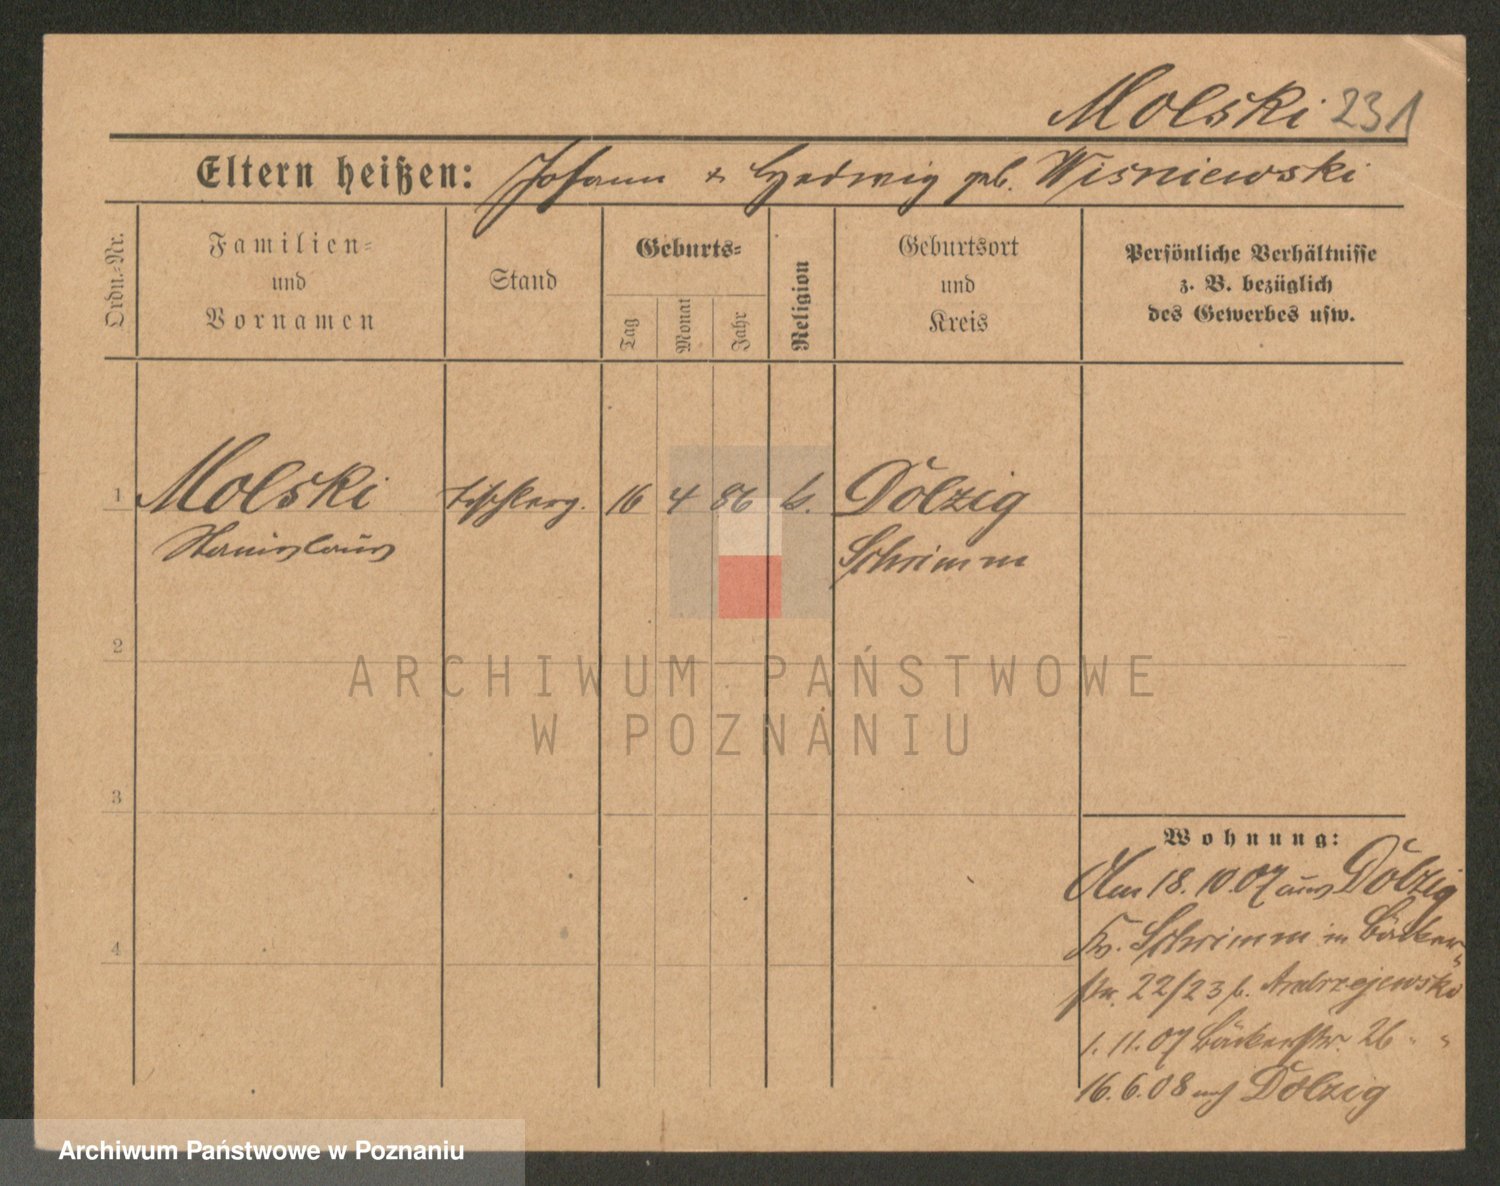 Molski 231
Eltern heißen: Johann & Hedwig geb. Wisniewski
Ordn.-Nr.
Familien-
und
Vornamen
Stand
Geburts-
Tag
Monat
Jahr
Religion
Geburtsort
und
Kreis
Persönliche Verhältnisse
z. B. bezüglich
des Gewerbes usw.
1 Molski Tischlerg. 16 4 86 k. Dolzig
Stanislaus Schrimm
2
3
4
ARCHIWUM PAŃSTWOWE
W POZNANIU
Wohnung:
Am 18.10.07 aus Dolzig
Kr. Schrimm in Bäcker-
str. 22/23 b. Andrzejewski
1.11.07 Bäckerstr. 26 " "
16.6.08 nach Dolzig
Archiwum Państwowe w Poznaniu